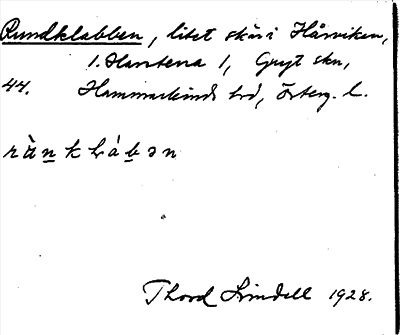 Rundklabben, litet skär i Hårviken,
1. Hartena 1, Gryt skn,
44. Hammarkinds hd, Österg. l.
rùnkḷábən
Thord Lindell 1928.